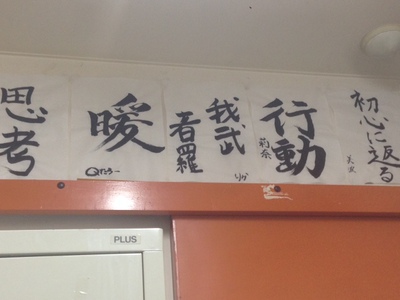 初心に返る
美咲
行動
莉奈
我武
者羅
りか
暖
Qたろー
思考
PLUS